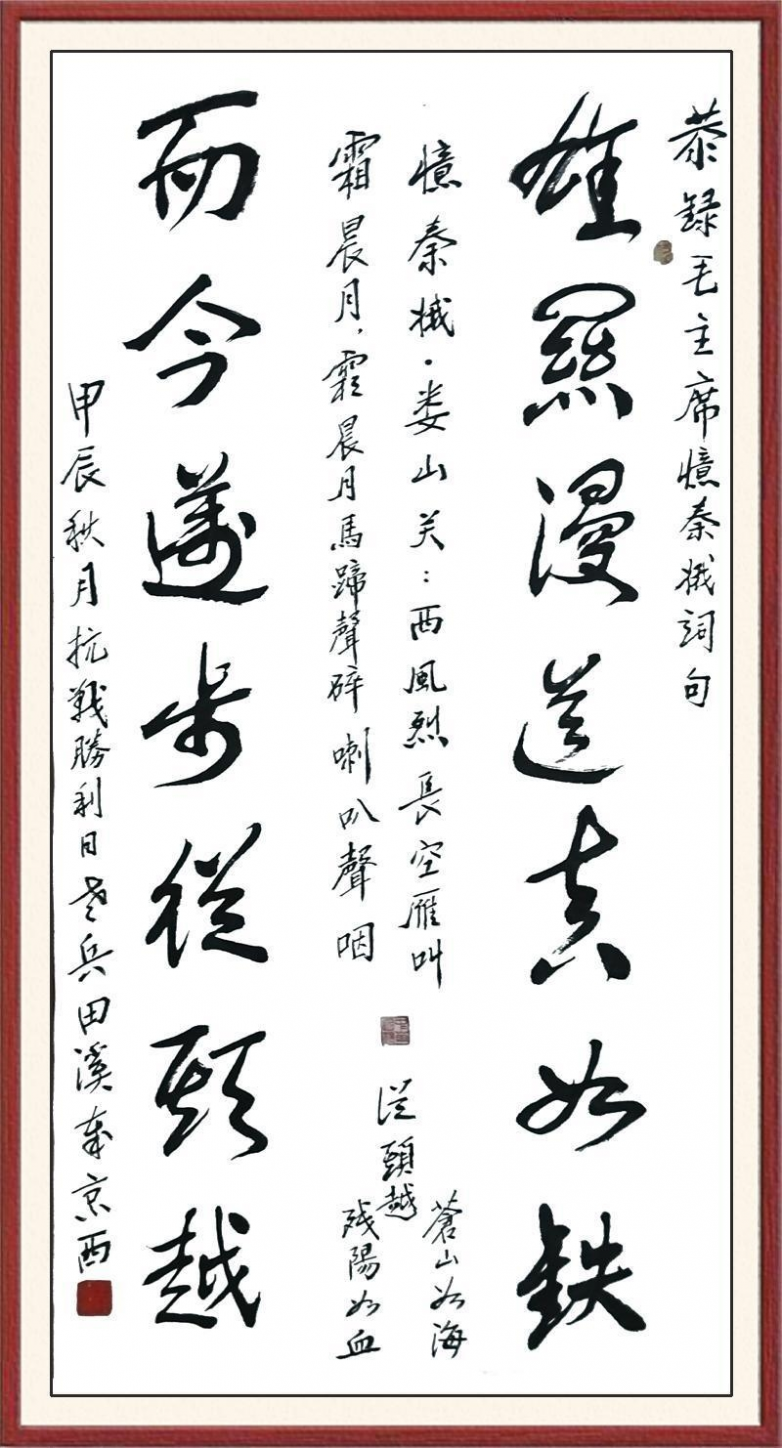 恭録毛主席憶秦娥詞句
雄關漫道真如鉄
憶秦娥·娄山关：西風烈長空雁叫
霜晨月，霜晨月馬蹄聲碎喇叭聲咽
從頭越
蒼山如海
残陽如血
而今邁步從頭越
甲辰秋月抗戰勝利日老兵田溪京西